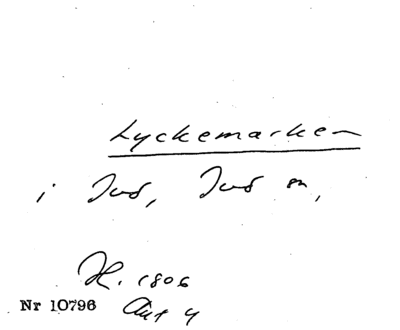 Lyckemarken
i Jud, Jud sn,
H. 1806
Nr 10796 Akt 4